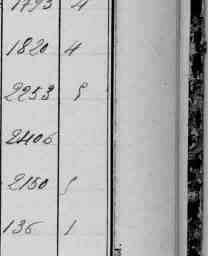 1793 4
1820 4
2253 5
2406
2150 5
136 1
d.